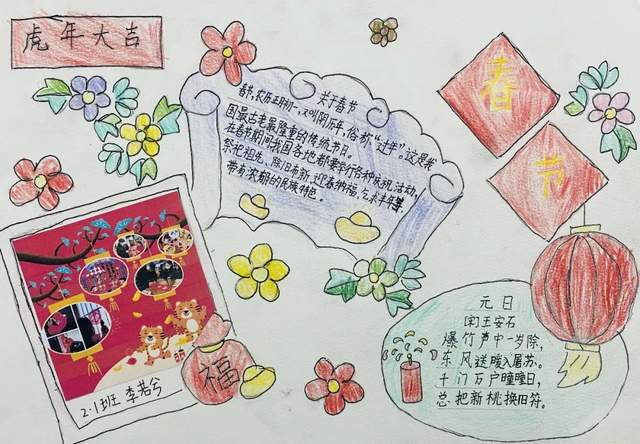 虎年大吉
关于春节
春节,农历正月初一,又叫阴历年,俗称“过年”。这是我
国最古老最隆重的传统节日。
在春节期间我国各地都要举行各种庆祝活动,
祭祀祖先、除旧布新、迎春纳福、乞求丰年等,
带有浓郁的民族特色。
春
节
2.1班 李若兮
福
元日
[宋]王安石
爆竹声中一岁除,
东风送暖入屠苏。
千门万户曈曈日,
总把新桃换旧符。